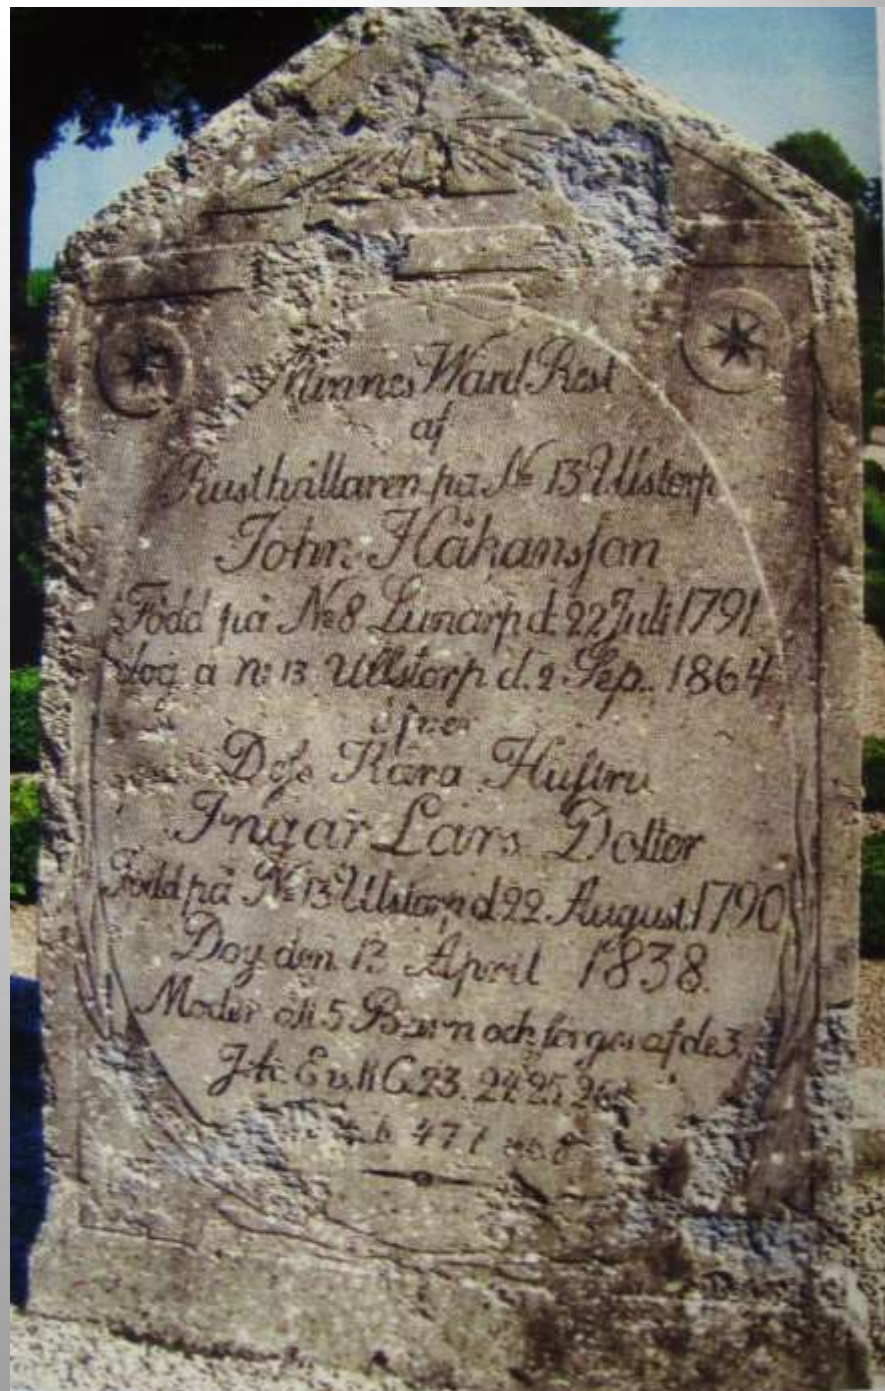 Minnes Ward Rest
af
Rusthållaren på № 13 Ullstorp
John Håkansson
Född på № 8 Lunarp d. 22 Juli 1791
dog å № 13 Ullstorp d. 2 Sep. 1864
öfwer
Dess Kära Hustru
Ingar Lars Dotter
Född på № 13 Ullstorp d 22 August. 1790
Dog den 13 April 1838.
Moder till 5 Barn och sörges af de 3.
J. K. Ev. 11 C. 23. 24. 25. 26
477